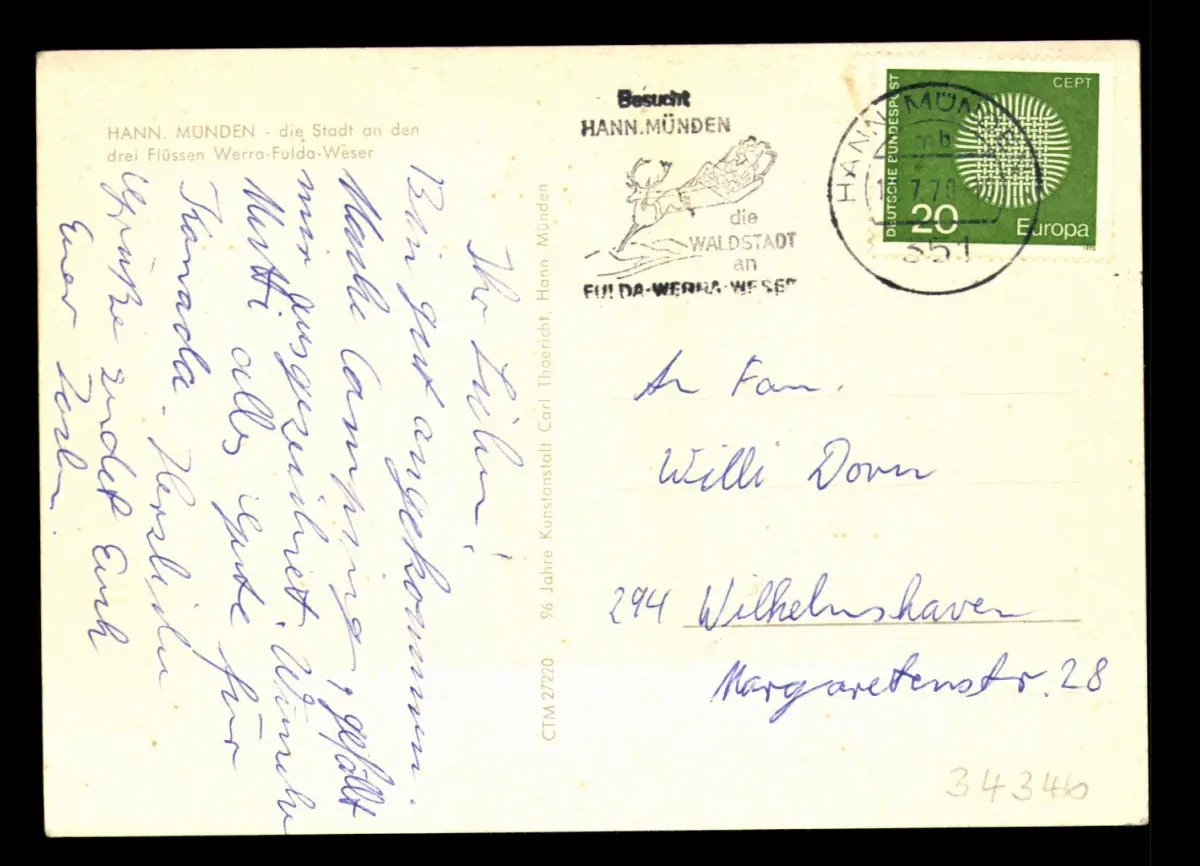 HANN. MÜNDEN - die Stadt an den
drei Flüssen Werra-Fulda-Weser
Ihr Lieben!
Bin gut angekommen.
Mache Camping, gefällt
mir ausgezeichnet. Wünsche
Mutti alles Gute für
Kanada. Herzliche
Grüße sendet Euch
Euer
CTM 27220 96 Jahre Kunstanstalt Carl Thoericht, Hann. Münden
Besucht
HANN.MÜNDEN
die
WALDSTADT
an
FULDA-WERRA-WESER
HANN. MÜNDEN
mb
7.70
351
DEUTSCHE BUNDESPOST
CEPT
20
Europa
1970
An Fam.
Willi Dorn
294 Wilhelmshaven
Margaretenstr. 28
34346